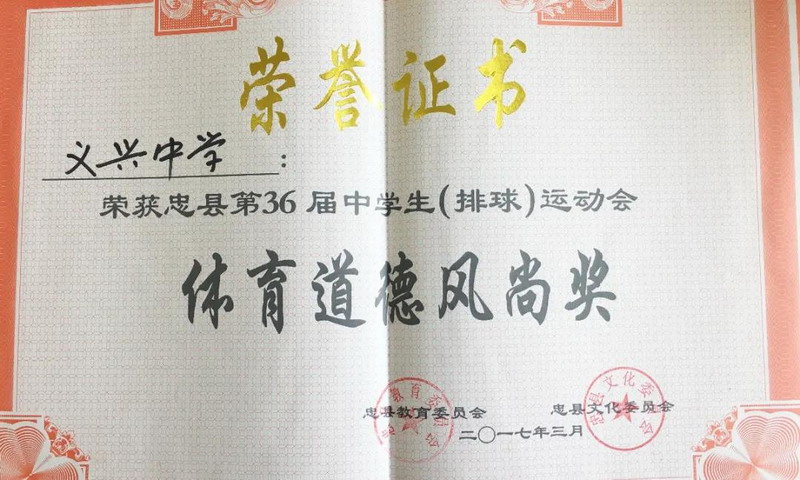 荣誉证书
义兴中学：
荣获忠县第36届中学生(排球)运动会
体育道德风尚奖
忠县教育委员会 忠县文化委员会
二〇一七年三月